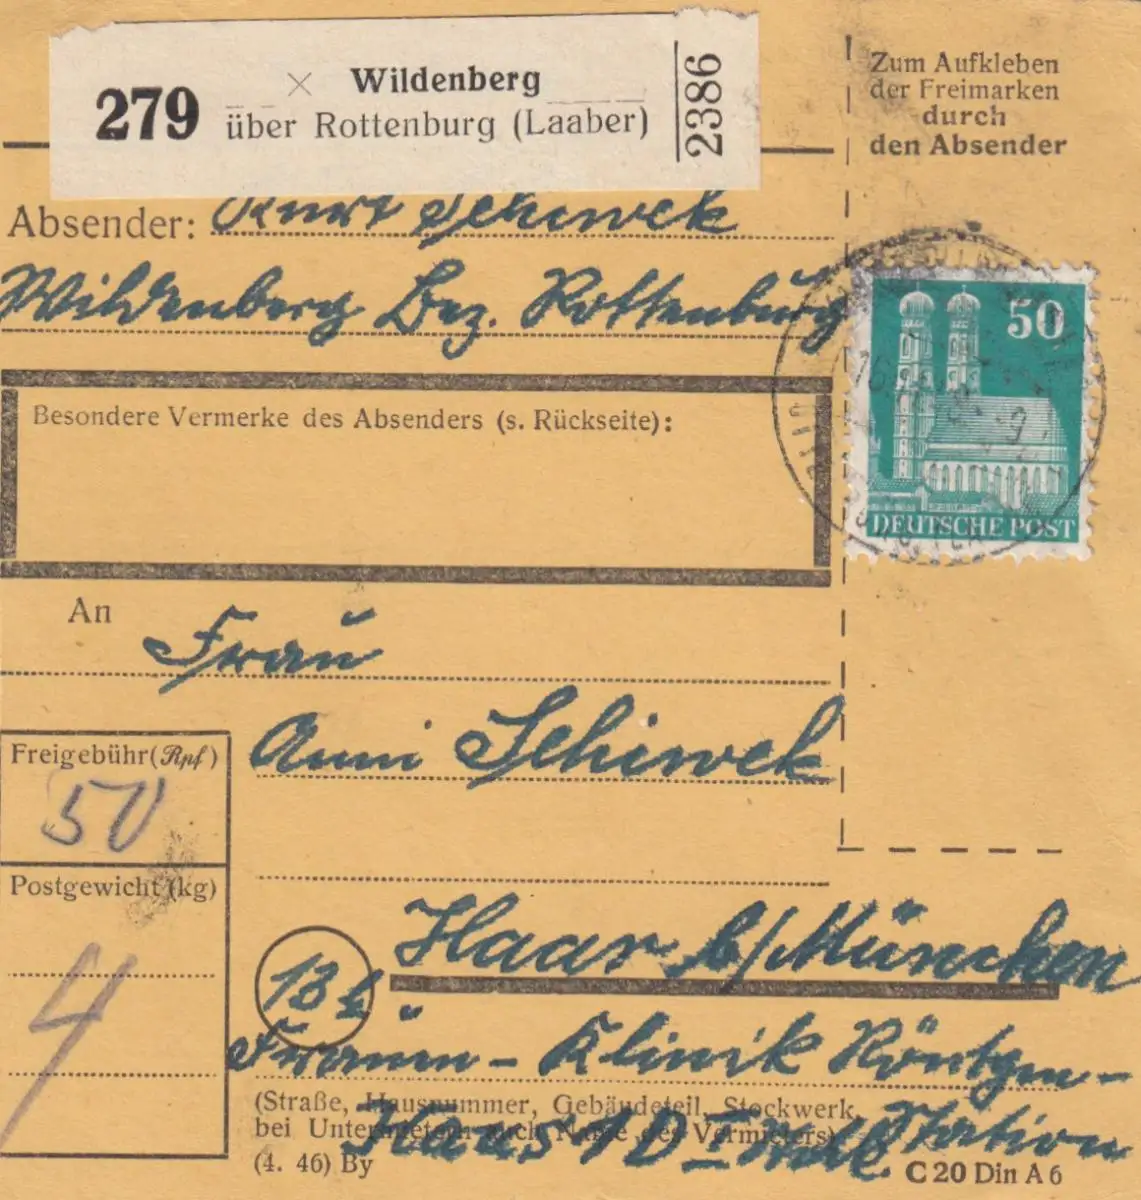 279 × Wildenberg
über Rottenburg (Laaber)
2386
Zum Aufkleben
der Freimarken
durch
den Absender
Absender: Kurt Schiwek
Wildenberg Bez. Rottenburg
50
DEUTSCHE POST
Besondere Vermerke des Absenders (s. Rückseite):
An Frau
Anni Schiwek
Freigebühr (Rpf)
50
Postgewicht (kg)
4
13b
Haar b/München
Frauen-Klinik Röntgen-
(Straße, Hausnummer, Gebäudeteil, Stockwerk,
bei Untermietern auch Name des Vermieters)
Haus Station
(4. 46) By
C 20 Din A 6